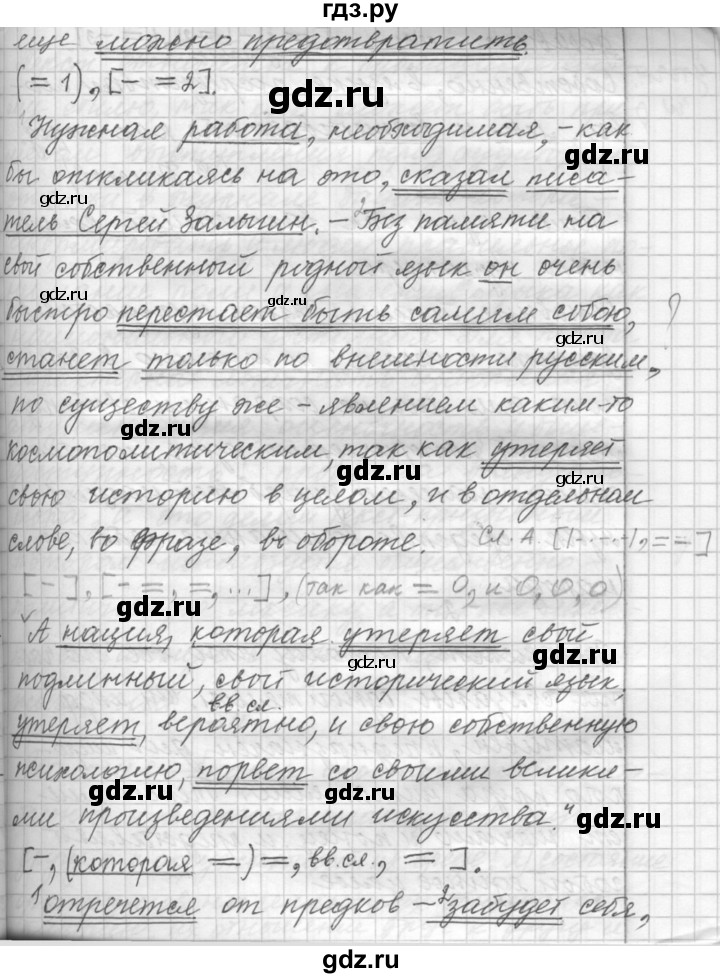 гдз.ру
еще можно предотвратить.
(= 1), [- = 2].
gdz.ru
Нужная работа, необходимая, - как
gdz.ru
бы откликаясь на это, сказал писа-
gdz.ru gdz.ru
тель Сергей Залыгин. - Без памяти на
gdz.ru
свой собственный родной язык он очень
gdz.ru
быстро перестает быть самим собою, ?
gdz.ru
станет только по внешности русским,
по существу же - явлением каким-то
gdz.ru
космополитическим, так как утеряет
gdz.ru gdz.ru
свою историю в целом, и в отдельном
слове, во фразе, в обороте. Сл. А. [
gdz.ru
[-], [- =, =, ...], (так как = О, и О, О, О)
gdz.ru
А нация, которая утеряет свой
gdz.ru gdz.ru
подлинный, свой исторический язык,
вв. сл.
gdz.ru
утеряет, вероятно, и свою собственную
психологию, порвет со своими велики-
gdz.ru gdz.ru
ми произведениями искусства."
gdz.ru
[-, (которая =) =, вв. сл., =].
gdz.ru
1 отречется от предков - 2 забудет себя,
gdz.ru gdz.ru